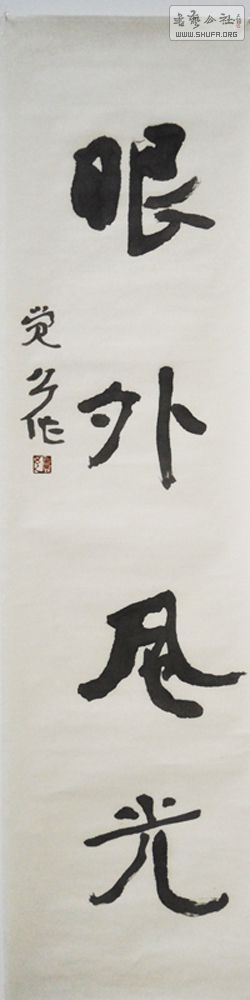 眼外风光
觉公作
书艺公社
WWW.SHUFA.ORG